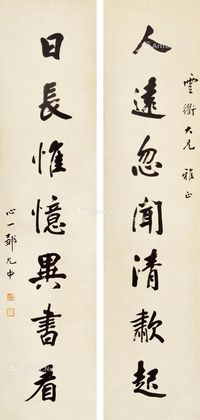 雲衢大兄雅正
人遠忽聞清歗起
日長惟憶異書看
心一鄒允中